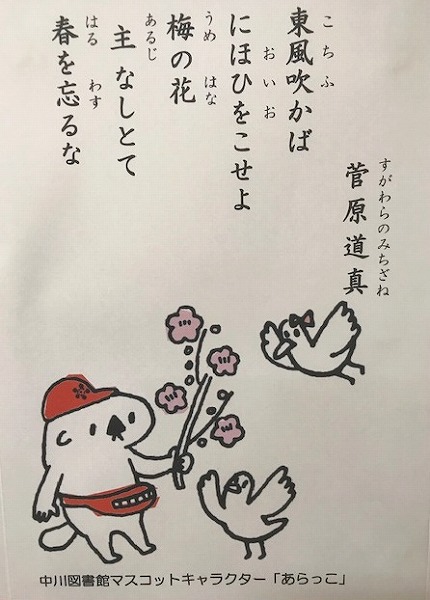 すがわらのみちざね
菅原道真
こちふ
東風吹かば
おいお
にほひをこせよ
うめ はな
梅の花
あるじ
主なしとて
はる わす
春を忘るな
中川図書館マスコットキャラクター「あらっこ」